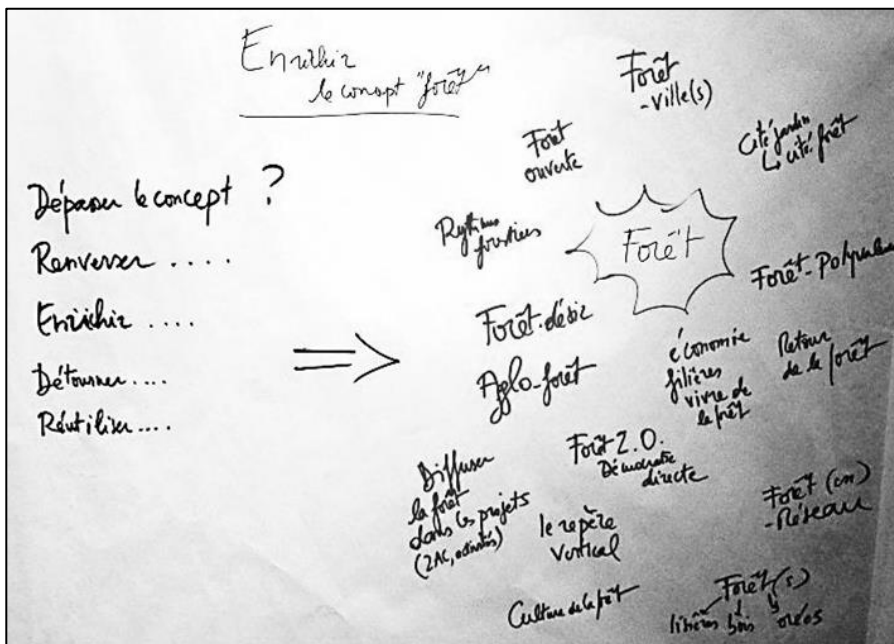 Enrichir
le concept "forêt"
Dépasser le concept ?
Renverser ....
Enrichir ....
Détourner ....
Réutiliser ....
⇒
Forêt
-ville(s)
Cité jardin
↳ cité forêt
Forêt
ouverte
Rythmes
forestiers
Forêt
Forêt-Polyvalente
Forêt-désir
Aglo-forêt
économie
filières
vivre de
la forêt
Retour
de la forêt
Forêt 2.0.
Démocratie
directe
Diffuser
la forêt
dans les projets
(ZAC, activités)
le repère
vertical
Forêt (en)
-Réseau
Culture de la forêt
Forêt(s)
lisières bois